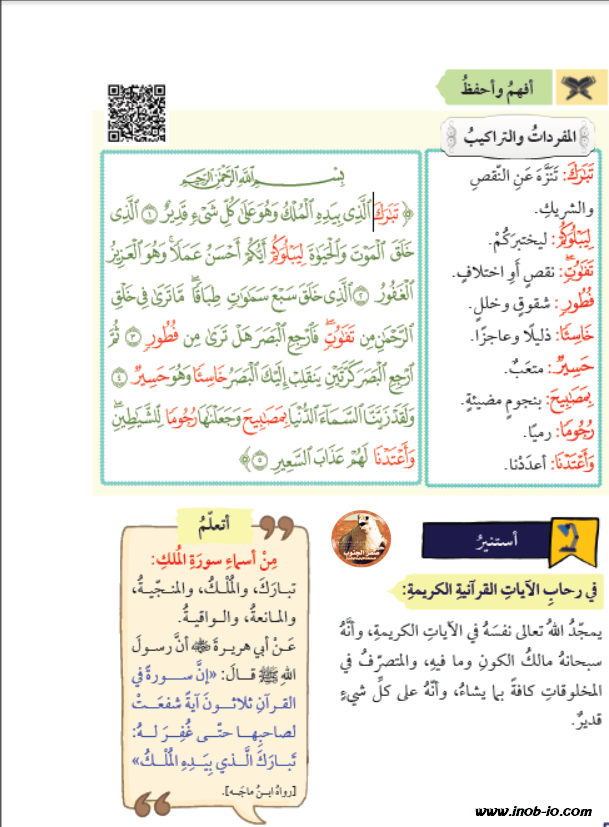 أفهمُ وأحفظُ
المفرداتُ والتراكيبُ
تَبَٰرَكَ: تَنَزَّهَ عَنِ النّقصِ
والشريكِ.
لِيَبْلُوَكُمْ: ليختبرَكُمْ.
تَفَٰوُتٍ: نقصٍ أَوِ اختلافٍ.
فُطُورٍ: شقوقٍ وخللٍ.
خَاسِئًا: ذليلًا وعاجزًا.
حَسِيرٌ: متعَبٌ.
بِمَصَٰبِيحَ: بنجومٍ مضيئةٍ.
رُجُومًا: رميًا.
وَأَعْتَدْنَا: أعدَدْنا.
بِسْمِ اللَّهِ الرَّحْمَٰنِ الرَّحِيمِ
﴿ تَبَٰرَكَ ٱلَّذِى بِيَدِهِ ٱلْمُلْكُ وَهُوَ عَلَىٰ كُلِّ شَىْءٍ قَدِيرٌ ١ ٱلَّذِى
خَلَقَ ٱلْمَوْتَ وَٱلْحَيَوٰةَ لِيَبْلُوَكُمْ أَيُّكُمْ أَحْسَنُ عَمَلًا وَهُوَ ٱلْعَزِيزُ
ٱلْغَفُورُ ٢ ٱلَّذِى خَلَقَ سَبْعَ سَمَٰوَٰتٍ طِبَاقًا مَّا تَرَىٰ فِى خَلْقِ
ٱلرَّحْمَٰنِ مِن تَفَٰوُتٍ فَٱرْجِعِ ٱلْبَصَرَ هَلْ تَرَىٰ مِن فُطُورٍ ٣ ثُمَّ
ٱرْجِعِ ٱلْبَصَرَ كَرَّتَيْنِ يَنقَلِبْ إِلَيْكَ ٱلْبَصَرُ خَاسِئًا وَهُوَ حَسِيرٌ ٤
وَلَقَدْ زَيَّنَّا ٱلسَّمَآءَ ٱلدُّنْيَا بِمَصَٰبِيحَ وَجَعَلْنَٰهَا رُجُومًا لِّلشَّيَٰطِينِ
وَأَعْتَدْنَا لَهُمْ عَذَابَ ٱلسَّعِيرِ ٥﴾
أستنيرُ
في رحابِ الآياتِ القرآنيةِ الكريمةِ:
يمجّدُ اللهُ تعالى نفسَهُ في الآياتِ الكريمةِ، وأنَّهُ
سبحانهُ مالكُ الكونِ وما فيهِ، والمتصرّفُ في
المخلوقاتِ كافةً بما يشاءُ، وأنَّهُ على كلِّ شيءٍ
قديرٌ.
أتعلّمُ
مِنْ أسماءِ سورَةِ المُلكِ:
تباركَ، والمُلْكُ، والمنجّيةُ،
والمانعةُ، والواقيةُ.
عَنْ أبي هريرةَ ﷺ أنَّ رسولَ
اللهِ ﷺ قالَ: «إنَّ سورةً في
القرآنِ ثلاثونَ آيةً شفعَتْ
لصاحبِها حتّى غُفِرَ لهُ:
تَبارَكَ الَّذي بِيَدِهِ المُلْكُ»
[رواهُ ابنُ ماجَه].
صقر الجنوب
www.inob-io.com